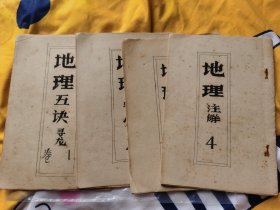 地理五诀
寻龙
卷1
地理
地理
地理
注解
4